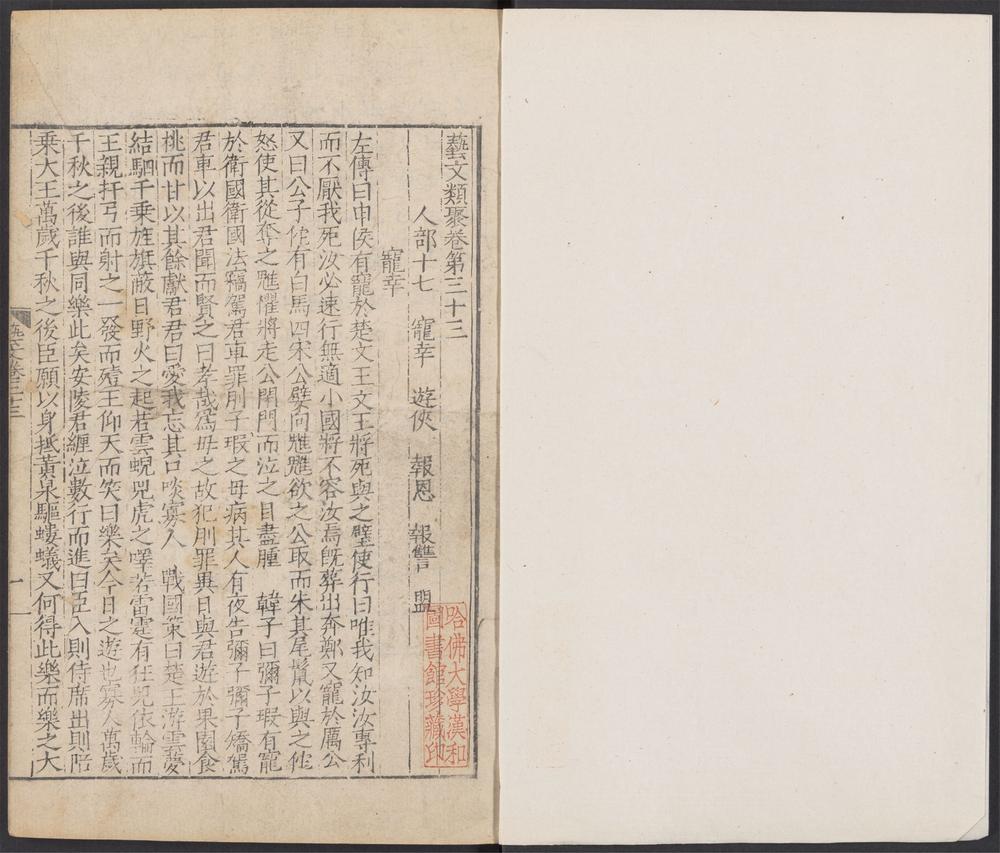 藝文類聚卷第三十三
人部十七 寵幸 遊俠 報恩 報讐 盟
寵幸
左傳曰申侯有寵於楚文王文王將死與之璧使行曰唯我知汝汝專利
而不厭我死汝必速行無適小國將不容汝焉旣葬出奔鄭又寵於厲公
又曰公子佗有白馬四宋公嬖向魋魋欲之公取而朱其尾鬣以與之佗
怒使其從奪之魋懼將走公閉門而泣之目盡腫 韓子曰彌子瑕有寵
於衛國衛國法竊駕君車罪刖子瑕之母病其人有夜告彌子彌子矯駕
君車以出君聞而賢之曰孝哉爲母之故犯刖罪異日與君遊於果園食
桃而甘以其餘獻君君曰愛我忘其口啖寡人 戰國策曰楚王游雲夢
結駟千乘旌旗蔽日野火之起若雲蜺兕虎之嘷若雷霆有狂兕依輪而
王親扞弓而射之一發而殪王仰天而笑曰樂矣今日之遊也寡人萬歲
千秋之後誰與同樂此矣安陵君纏泣數行而進曰臣入則侍席出則陪
乘大王萬歲千秋之後臣願以身抵黃泉驅螻蟻又何得此樂而樂之大
藝文卷三十三
一
哈佛大學漢和
圖書館珍藏印